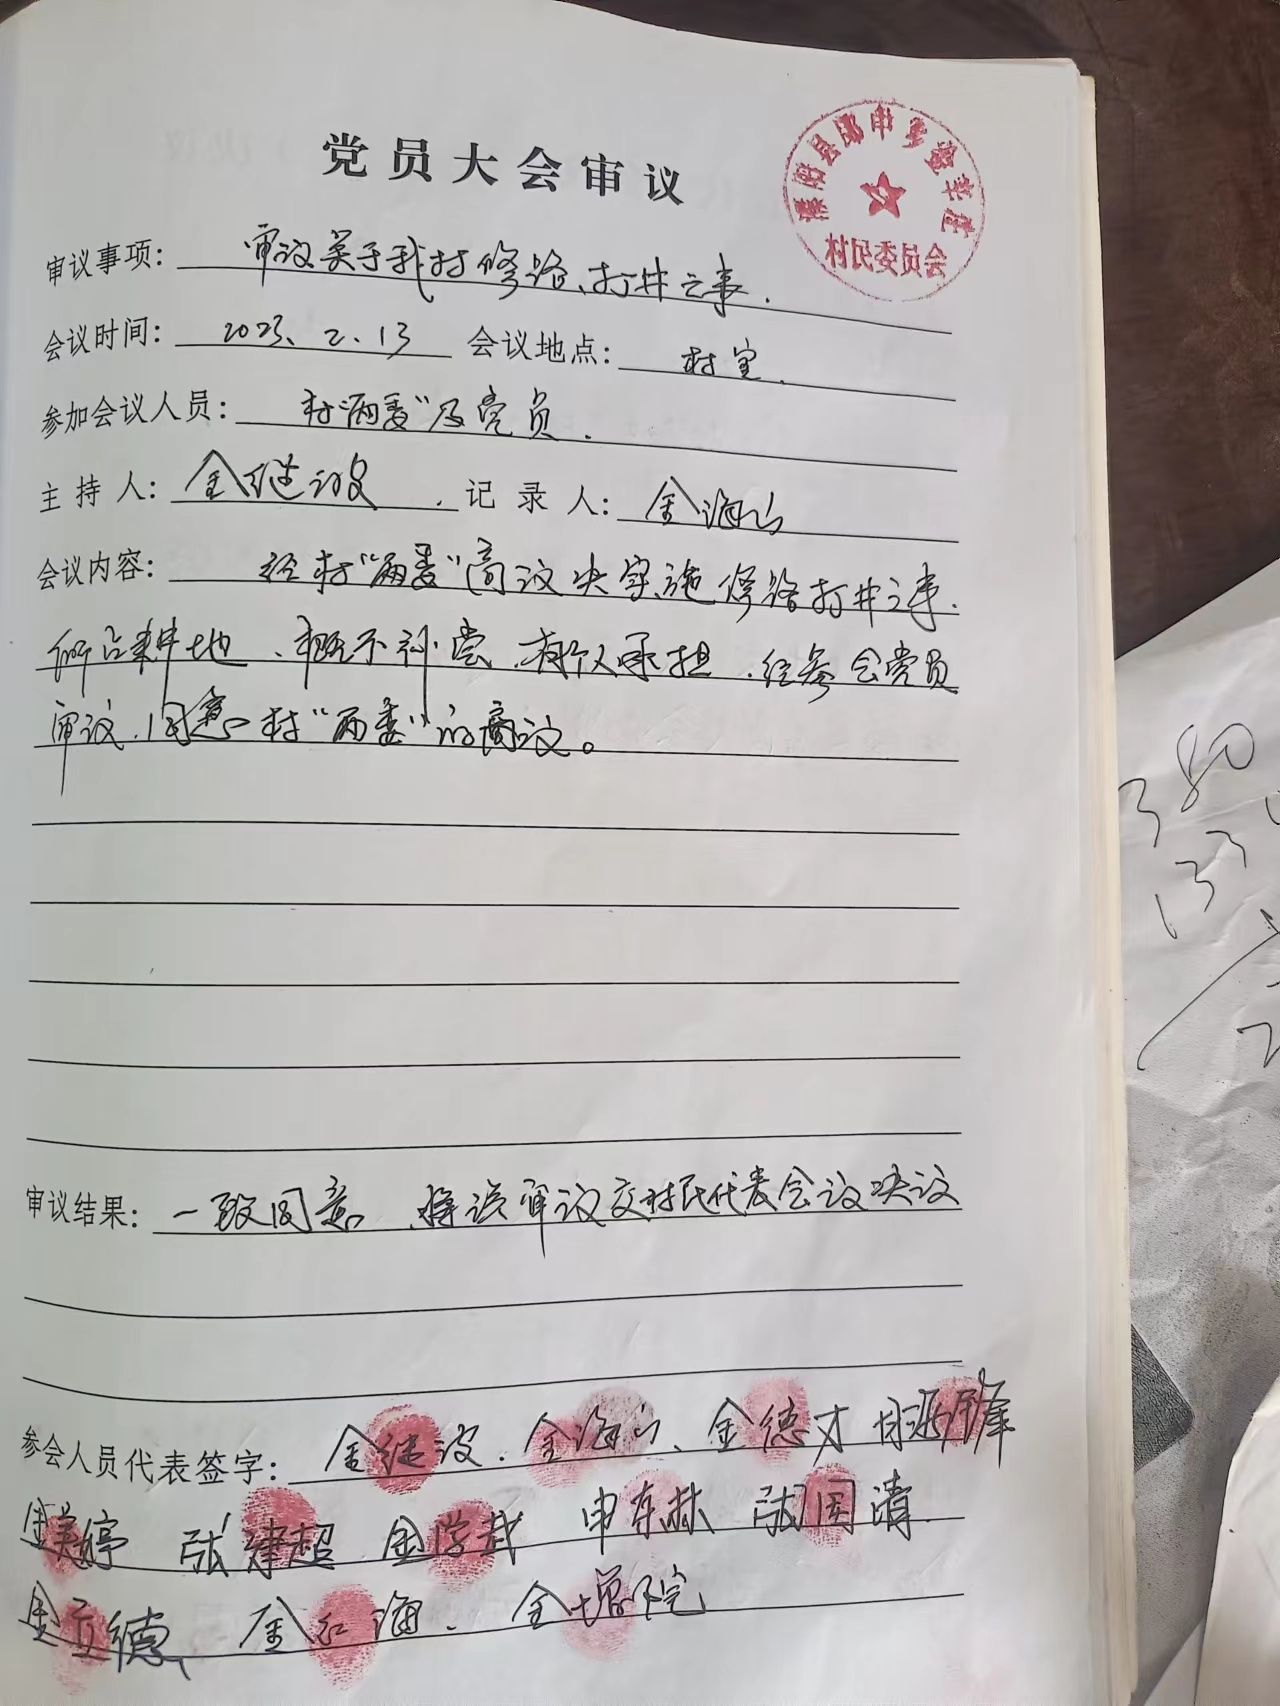 党员大会审议
村民委员会
审议事项: 审议关于我村修路、打井之事.
会议时间: 2023.2.13 会议地点: 村室.
参加会议人员: 村"两委"及党员.
主持人: 金继波. 记录人: 金海山
会议内容: 经村"两委"商议决实施修路打井之事.
所占耕地、概不补尝.有个人承担.经参会党员
审议.同意村"两委"的商议。
审议结果: 一致同意.将该审议交村民代表会议决议
参会人员代表签字: 金继波.金海山、金德才
金美婷 张建超 金学武 申东林 张国清.
金立德、金红海.金增院
380